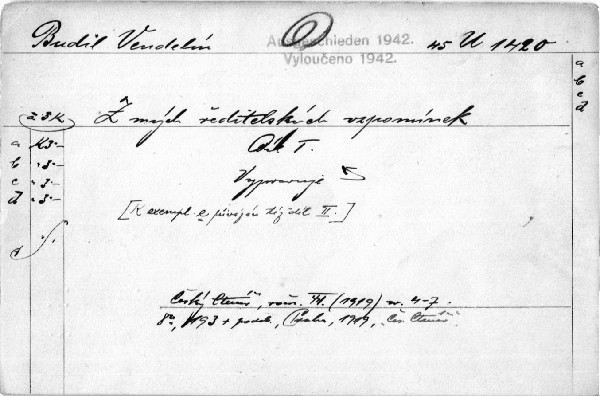 Budil Vendelín
Ausgeschieden 1942.
Vyloučeno 1942.
45 U 1420
a
b
c
d
Z mých ředitelských vzpomínek
a K3·–
Díl I.
b ·3·–
c ·3·–
Vypravuje
d ·3·–
[K exempl. e, přivázán též díl II.]
Český Čtenář, roč. XI. (1919) nr. 4-7.
8°, 193 + podob. (Praha, 1919, „Čes. Čtenář"